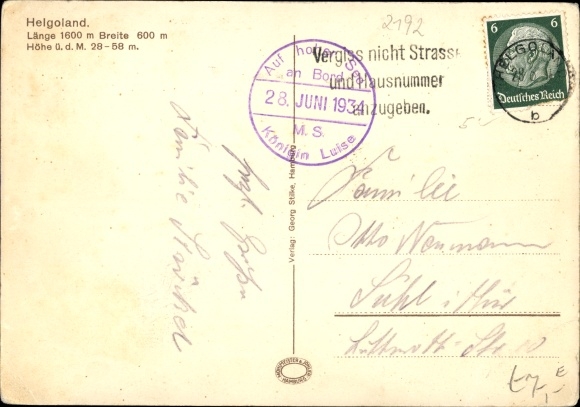 Helgoland.
Länge 1600 m Breite 600 m
Höhe ü. d. M. 28-58 m.
2192
Auf hoher See
an Bord
28. JUNI 1934
M. S.
Königin Luise
Vergiss nicht Strasse
und Hausnummer
anzugeben.
HELGOLAND
b
6 6
Deutsches Reich
Familie
Otto Neumann
Suhl i. Thür
Str. 10
Familie
Verlag: Georg Stilke, Hamburg
MÜHLMEISTER & JOHLER
HAMBURG